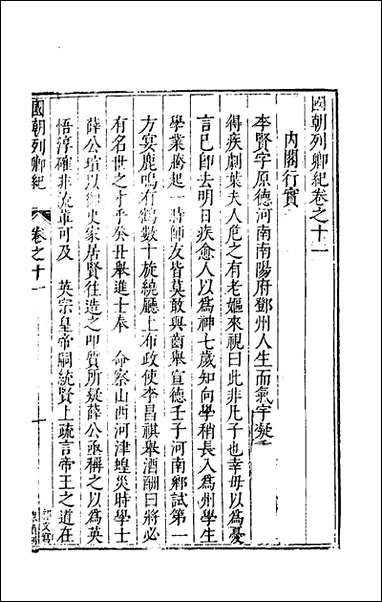 國朝列卿紀卷之十一
內閣行實
李賢字原德河南南陽府鄧州人生而氣宇凝
得疾劇葉夫人危之有老嫗來視曰此非凡子也幸毋以為憂
言已卽去明日疾愈人以為神七歲知向學稍長入為州學生
學業騰起一時師友皆莫敢與齒舉宣德壬子河南鄉試第一
方宴鹿鳴有鶴數十旋繞廳上布政使李昌祺舉酒酬曰將必
有名世之才乎癸丑舉進士奉 命察山西河津蝗災時學士
薛公瑄以御史家居賢往造之叩質所疑薛公亟稱之以為英
悟淳確非流輩可及 英宗皇帝嗣統賢上疏言帝王之道在
國朝列卿紀
卷之十一